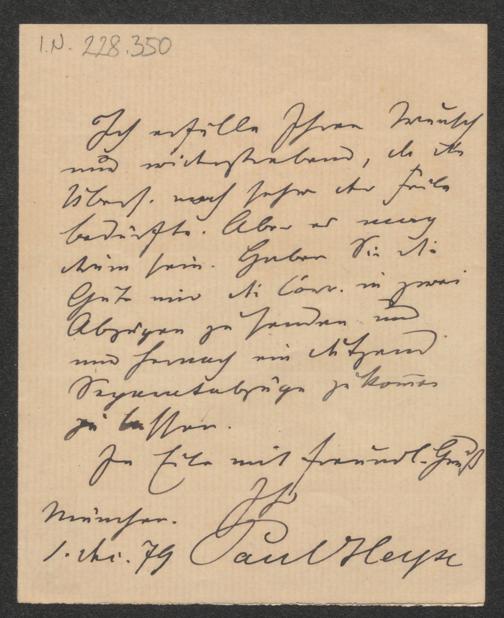 I.N. 228.350
Ich erfülle Ihren Wunsch
nur widerstrebend, da die
Übers. noch sehr der Feile
bedürfte. Aber es mag
drum sein. Haben Sie die
Güte mir die Corr. in zwei
Abzügen zu senden und
mir hernach ein Dutzend
Separatabzüge zukommen
zu lassen.
In Eile mit freundl. Gruß
Ihr
München.
1. 79 Paul Heyse